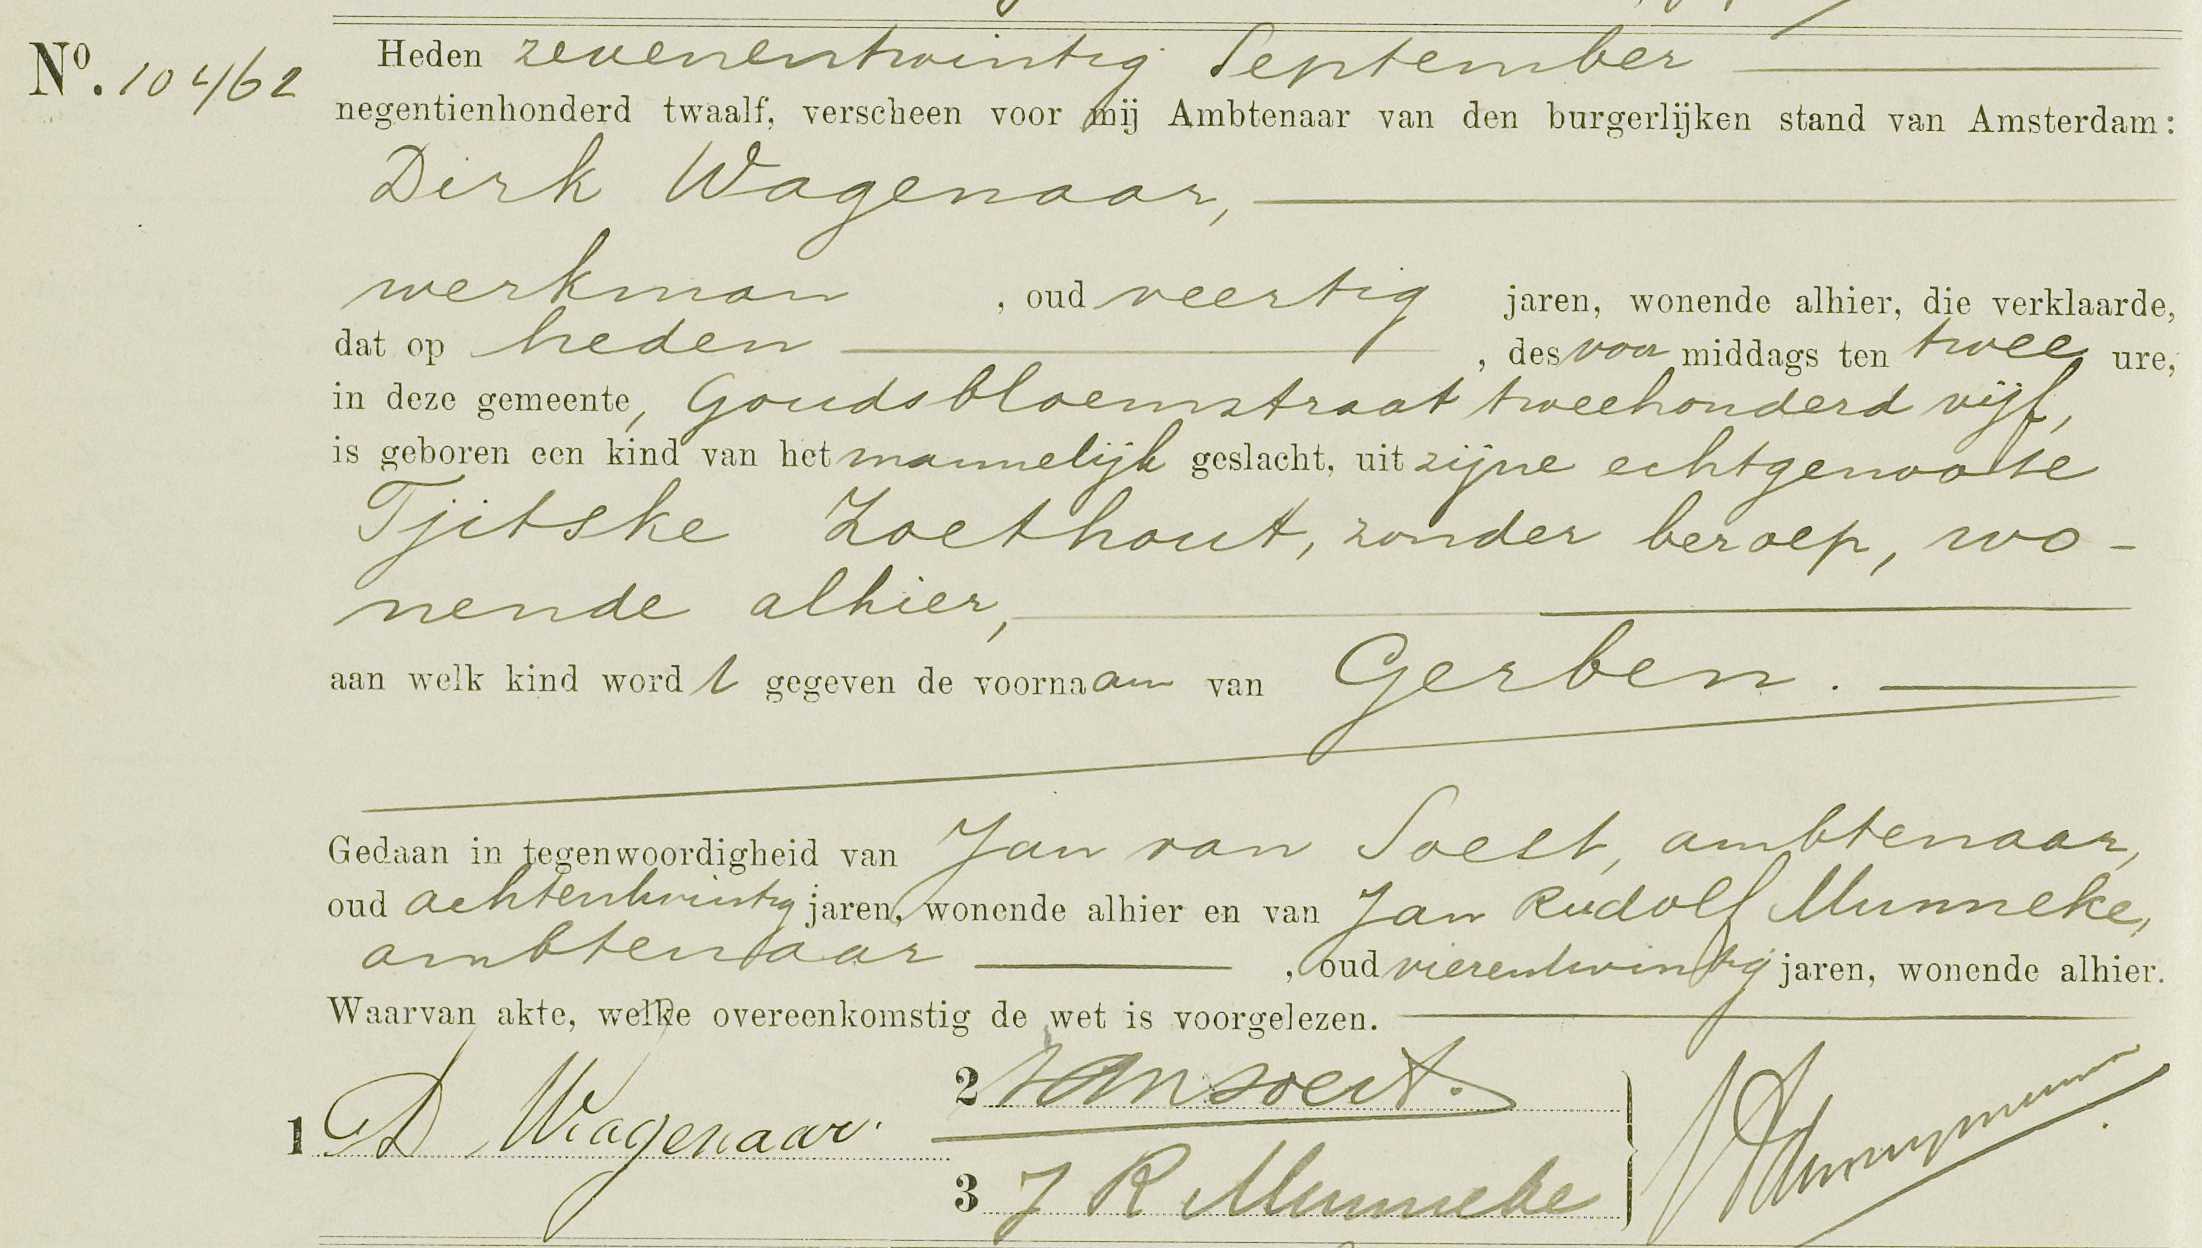 No. 10462
Heden zevenentwintig September
negentienhonderd twaalf, verscheen voor mij Ambtenaar van den burgerlijken stand van Amsterdam:
Dirk Wagenaar,
werkman , oud veertig jaren, wonende alhier, die verklaarde,
dat op heden , des voor middags ten twee ure,
in deze gemeente, Goudsbloemstraat tweehonderd vijf,
is geboren een kind van het mannelijk geslacht, uit zijne echtgenoote
Tjitske Zoethout, zonder beroep, wo-
nende alhier,
aan welk kind wordt gegeven de voornaam van Gerben.
Gedaan in tegenwoordigheid van Jan van Soest, ambtenaar,
oud achtentwintig jaren, wonende alhier en van Jan Rudolf Munneke,
ambtenaar , oud vierentwintig jaren, wonende alhier.
Waarvan akte, welke overeenkomstig de wet is voorgelezen.
1 D Wagenaar.
2 van Soest.
3 J R Munneke